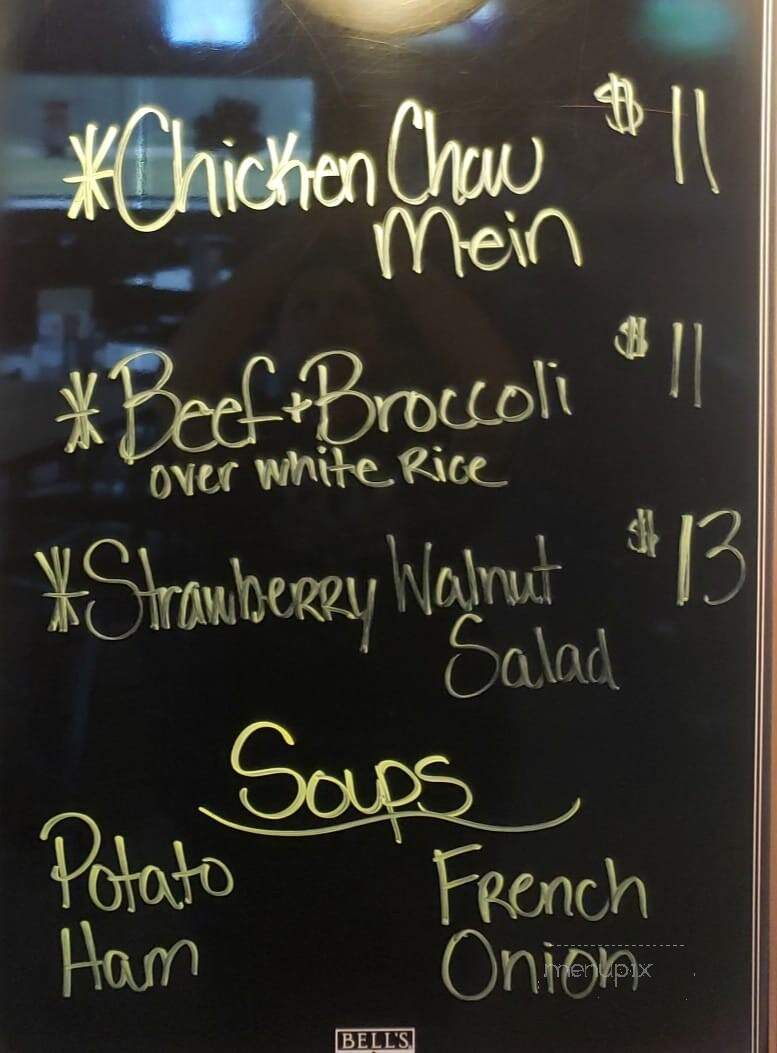 *Chicken Chow $11
Mein
*Beef + Broccoli $11
over white Rice
*Strawberry Walnut $13
Salad
Soups
Potato French
Ham Onion
menupix
BELL'S